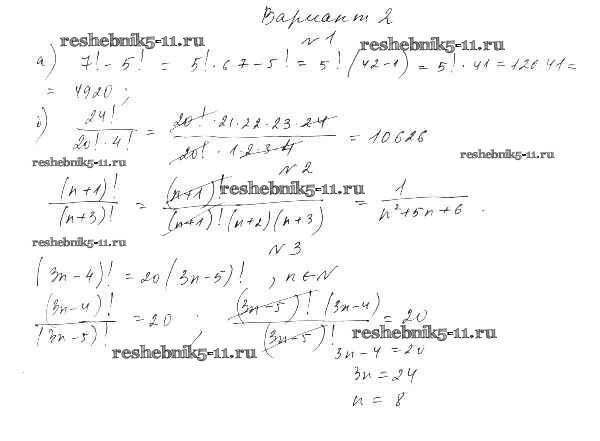 Вариант 2
reshebnik5-11.ru
№1
reshebnik5-11.ru
а) 7! - 5! = 5! · 6 7 - 5! = 5! (42-1) = 5! · 41 = 120 41 =
= 4920 ;
б) 24! / 20! · 4! = 20! · 21 · 22 · 23 · 24 / 20! · 1 · 2 · 3 · 4 = 10626
reshebnik5-11.ru
reshebnik5-11.ru
№2
reshebnik5-11.ru
(n+1)! / (n+3)! = (n+1)! / (n+1)! (n+2) (n+3) = 1 / n²+5n+6 .
reshebnik5-11.ru
№3
(3n-4)! = 20 (3n-5)! , n∈N
(3n-4)! / (3n-5)! = 20 ; (3n-5)! (3n-4) / (3n-5)! = 20
reshebnik5-11.ru
reshebnik5-11.ru
3n-4 = 20
3n = 24
n = 8